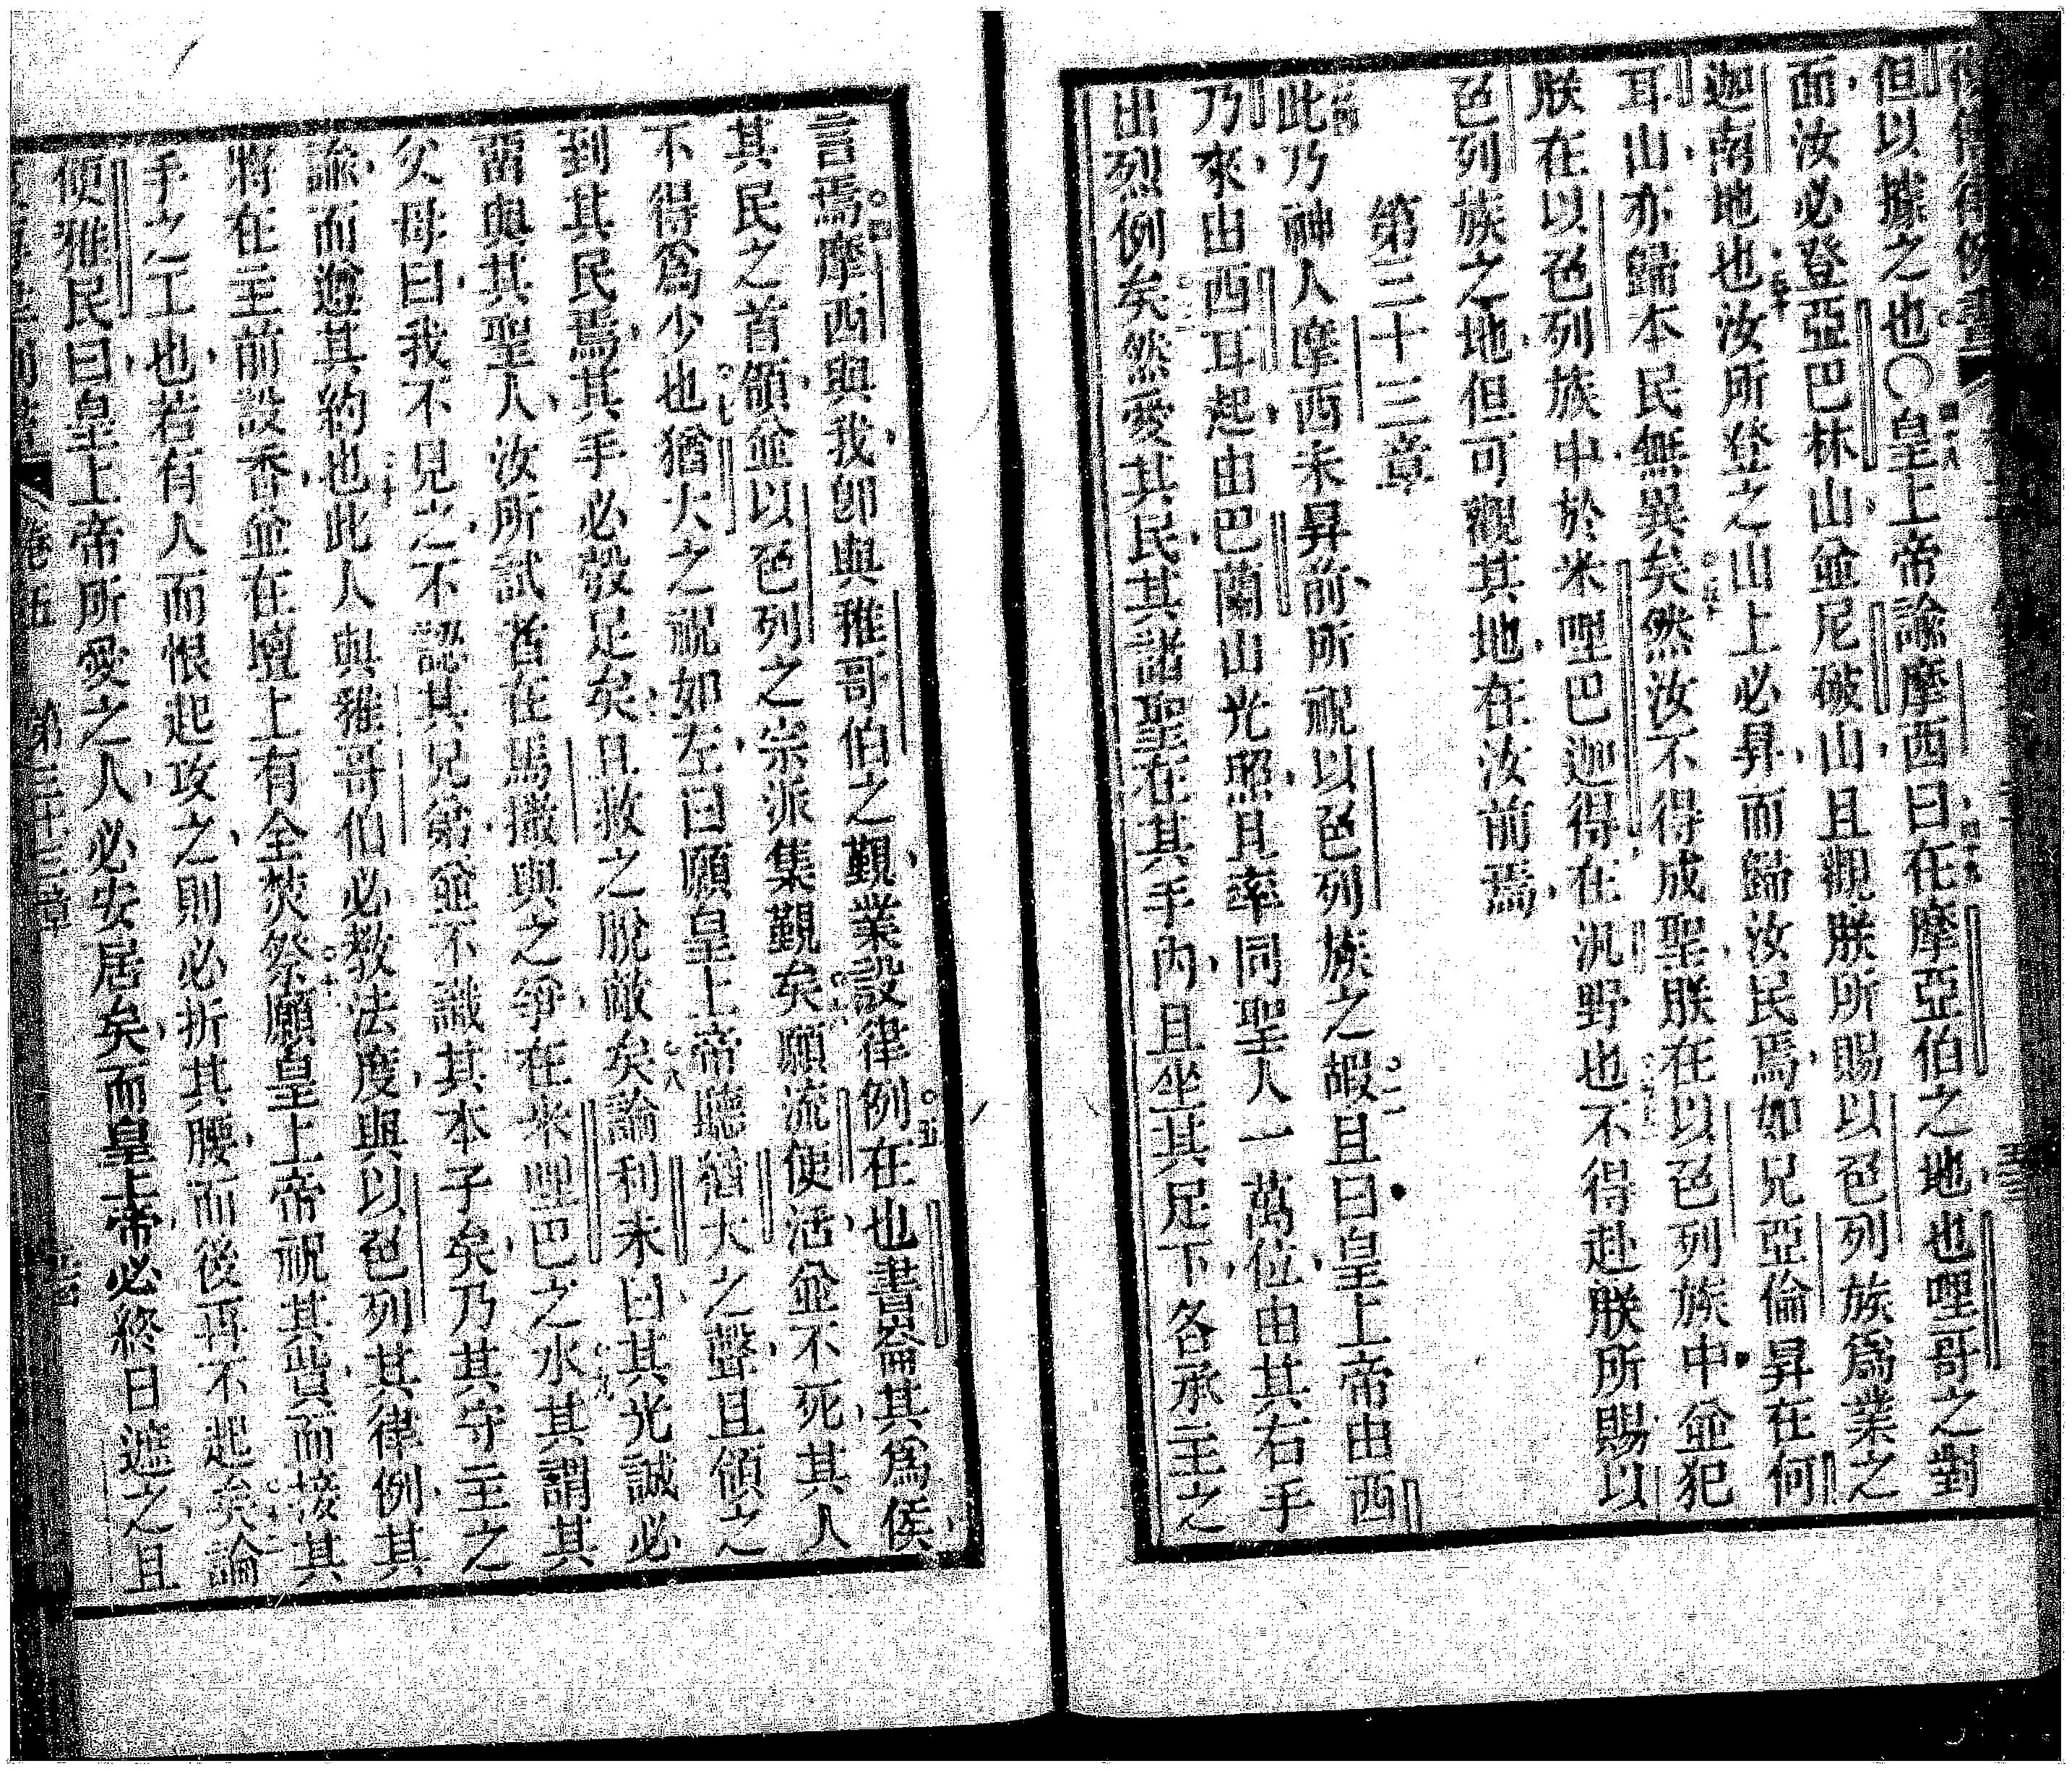 復傳律例書
但以據之也〇皇上帝諭摩西曰在摩亞伯之地也哩哥之對
而汝必登亞巴林山並尼破山且觀朕所賜以色列族爲業之
迦南地也汝所登之山上必昇而歸汝民焉如兄亞倫昇在何
耳山亦歸本民無異矣然汝不得成聖朕在以色列族中並犯
朕在以色列族中於米哩巴迦得在汎野也不得赴朕所賜以
色列族之地但可觀其地在汝前焉
第三十三章
此乃神人摩西未昇前所祝以色列族之嘏且曰皇上帝由西
乃來由西耳起由巴蘭山光照且率同聖人一萬位由其右手
出烈例矣然愛其民其諸聖在其手內且坐其足下各承主之
言焉摩西與我卽與雅哥伯之覲業設律例在也書崙其爲侯
其民之首領並以色列之宗派集覲矣願流便活並不死其人
不得爲少也猶大之祝如左曰願皇上帝聽猶大之聲且領之
到其民焉其手必彀足矣且救之脫敵矣論利未曰其光誠必
當與其聖人汝所試者在馬撒與之爭在米哩巴之水其謂其
父母曰我不見之不認其兄弟並不識其本子矣乃其守主之
諭而遵其約也此人與雅哥伯必教法度與以色列其律例其
將在主前設香並在壇上有全焚祭願皇上帝祝其貲而接其
手之工也若有人而恨起攻之則必折其腰而後再不起矣論
便雅民曰皇上帝所愛之人必安居矣而皇上帝必終日遮之且
卷五 第三十三章